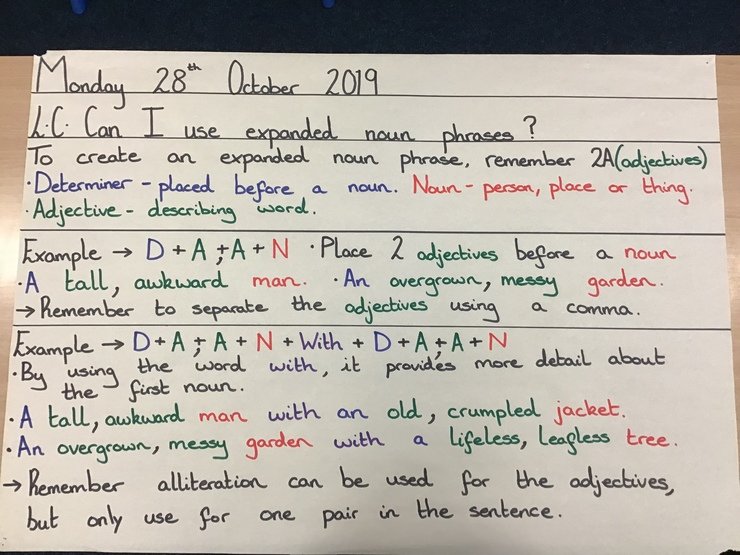 Monday 28th October 2019
L.C. Can I use expanded noun phrases?
To create an expanded noun phrase, remember 2A(adjectives)
·Determiner - placed before a noun. Noun - person, place or thing.
·Adjective - describing word.
Example → D + A , + A + N ·Place 2 adjectives before a noun
·A tall, awkward man. ·An overgrown, messy garden.
→ Remember to separate the adjectives using a comma.
Example → D + A , + A + N + With + D + A , + A + N
·By using the word with, it provides more detail about
the first noun.
·A tall, awkward man with an old, crumpled jacket.
·An overgrown, messy garden with a lifeless, leafless tree.
→ Remember alliteration can be used for the adjectives,
but only use for one pair in the sentence.